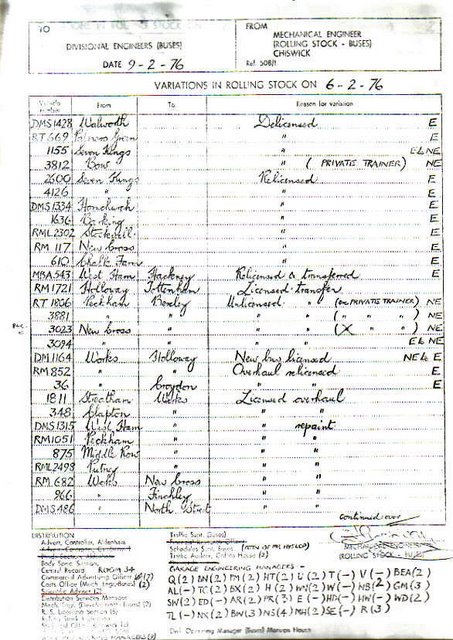 TO
DIVISIONAL ENGINEERS (BUSES)
DATE 9-2-76
FROM
MECHANICAL ENGINEER
(ROLLING STOCK - BUSES)
CHISWICK
Ref. 508/1
VARIATIONS IN ROLLING STOCK ON 6-2-76
Vehicle number From To Reason for variation
DMS 1428 Walworth Delicensed E
RT 669 Palmers Green " E
1155 Seven Kings " E & NE
3812 Bow " ( PRIVATE TRAINER) NE
2600 Seven Kings Relicensed E
4126 " " E
DMS 1334 Hornchurch " E
1636 Barking " E
RML 2302 Stockwell " E
RM 117 New Cross " E
610 Chalk Farm " E
MBA 543 West Ham Hackney Relicensed & transferred E
RM 1721 Holloway Tottenham Licensed transfer
RT 1806 Peckham Bexley Unlicensed " (ex PRIVATE TRAINER) NE
3881 " " " " ( " " " ) NE
3023 New Cross " " " ( " " " ) NE
3094 " " " " E & NE
DM 1164 Works Holloway New bus licensed NE & E
RM 852 " " Overhaul relicensed E
36 " Croydon " " E
1811 Streatham Works Licensed overhaul
348 Clapton " " "
DMS 1315 West Ham " " repaint
RM 1051 Peckham " " "
875 Middle Row " " "
RML 2498 Putney " " "
RM 682 Works New Cross " "
966 " Finchley " "
DMS 486 " North Street " "
continued over
MECHANICAL ENGINEER
ROLLING STOCK - BUSES
DISTRIBUTION
Advert. Controller, Aldenham
Body Shop
Central Record ROOM 34
Commercial Advertising Officer
Scientific Adviser
Distribution Services Manager
Traffic Supt. (Buses)
Schedules Supt. Buses
GARAGE ENGINEERING MANAGERS -
Q(2) BN(2) TM(2) HT(2) U(2) T(-) V(-) BEA(2)
AL(-) TC(2) BX(2) H(2) WN(2) W(-) NB(2) GM(3)
SW(2) ED(-) AR(2) PR(3) E(-) HD(-) HW(-) WD(2)
TL(-) NX(2) BW(3) NS(4) MH(2) SE(-) R(3)
Divl. Operating Manager (Buses) Manson House